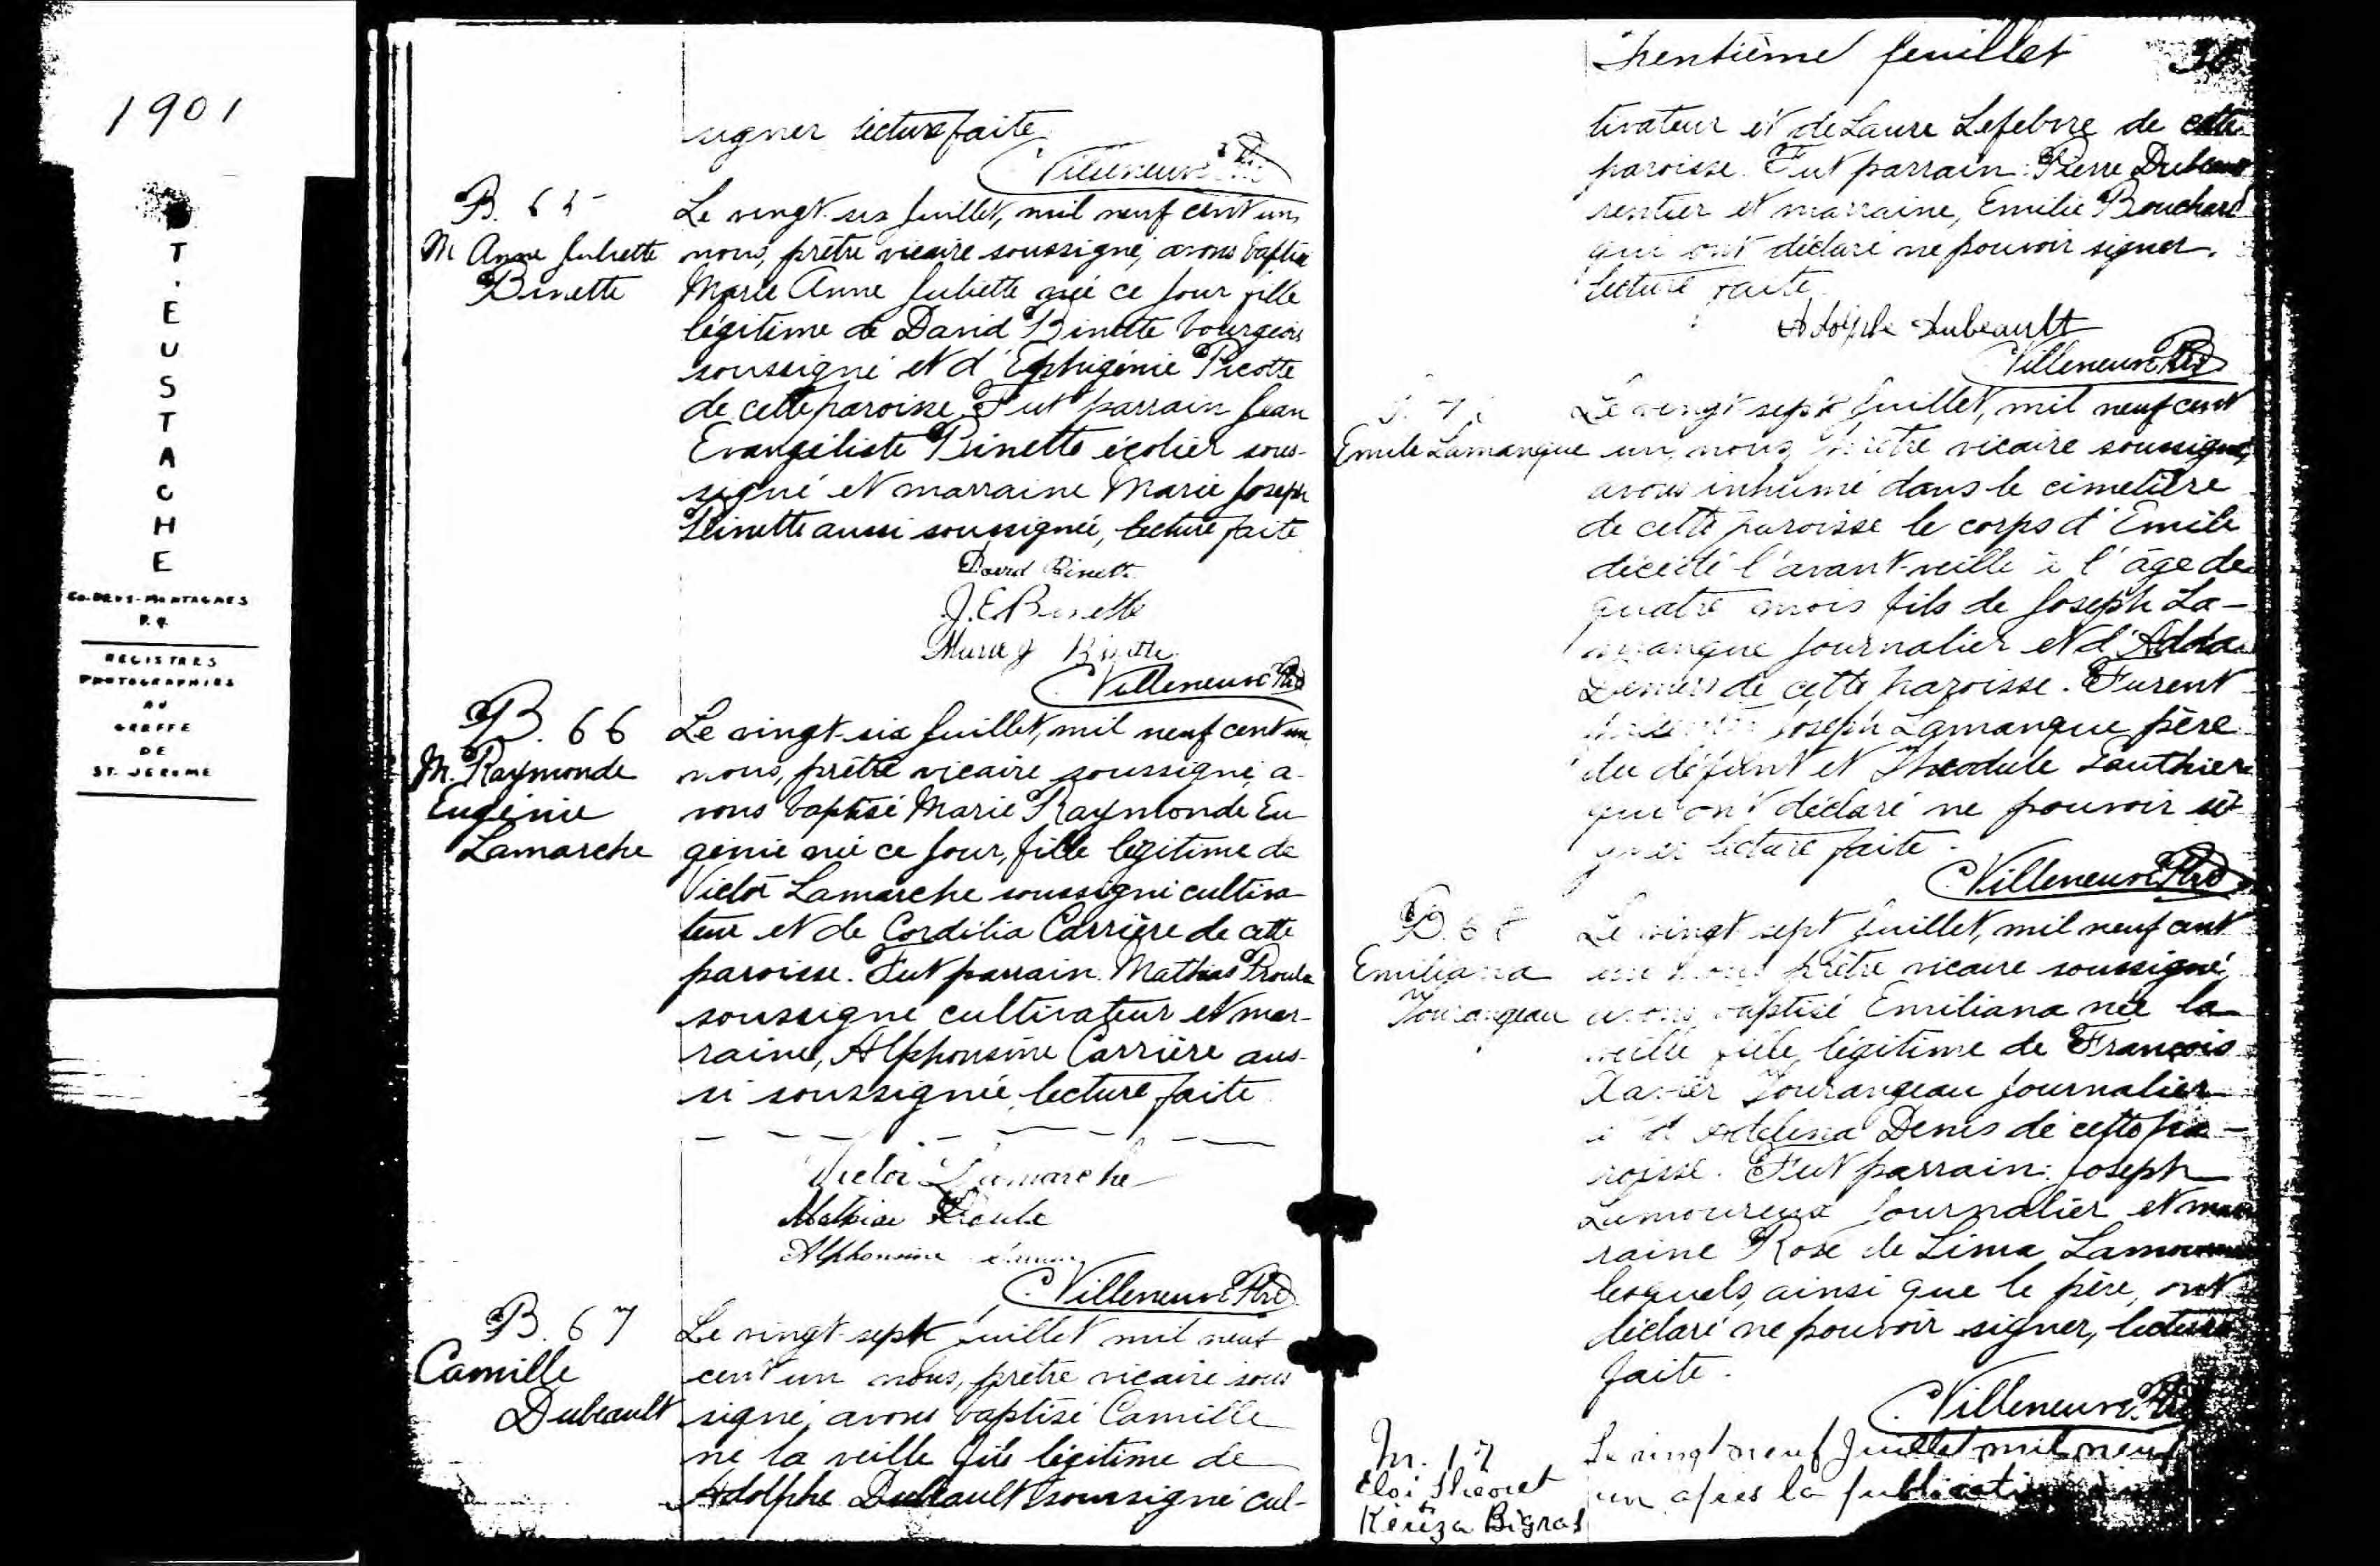 1901
ST. EUSTACHE
CO. DEUX-MONTAGNES
P.Q.
REGISTRES
PHOTOGRAPHIES
AU
GREFFE
DE
ST. JEROME
signer lecture faite
Villeneuve Ptre
B. 65
M Anne Juliette
Binette
Le vingt-six Juillet, mil neuf cent un,
nous, prêtre vicaire soussigné, avons baptisé
Marie Anne Juliette née ce jour fille
légitime de David Binette bourgeois
soussigné et d'Ephigénie Picotte
de cette paroisse. Fut parrain Jean
Evangéliste Binette écolier sous-
signé et marraine Marie Joseph
Binette aussi soussignée, lecture faite
David Binette
J.E. Binette
Marie J Binette
C. Villeneuve Ptre
B. 66
M. Raymonde
Eugénie
Lamarche
Le vingt-six Juillet, mil neuf cent un,
nous, prêtre vicaire soussigné, a-
vons baptisé Marie Raymonde Eu-
génie née ce jour, fille légitime de
Victor Lamarche soussigné cultiva-
teur et de Cordélia Carrière de cette
paroisse. Fut parrain Mathias Proulx
soussigné cultivateur et mar-
raine, Alphonsine Carrière aus-
si soussignée, lecture faite.
Victor Lamarche
Mathias Proulx
Alphonsine
C. Villeneuve Ptre
B. 67
Camille
Dubeault
Le vingt-sept Juillet mil neuf
cent un nous, prêtre vicaire sous
signé, avons baptisé Camille
né la veille fils légitime de
Adolphe Dubeault soussigné cul-
Trentième feuillet 30
tivateur et de Laure Lefebvre de cette
paroisse. Fut parrain: Pierre Dubeau
rentier et marraine, Emilie Bouchard
qui ont déclaré ne pouvoir signer,
lecture faite.
Adolphe Dubeault
C. Villeneuve Ptre
Emile Lamanque
Le vingt-sept Juillet, mil neuf cent
un, nous, prêtre vicaire soussigné,
avons inhumé dans le cimetière
de cette paroisse le corps d'Emile
décédé l'avant-veille à l'âge de
quatre mois fils de Joseph La-
manque journalier et d'Adda
Demers de cette paroisse. Furent
Joseph Lamanque père
du défunt et Théodule Gauthier
qui ont déclaré ne pouvoir si-
gner lecture faite.
C. Villeneuve Ptre
B. 68
Emiliana
Tourangeau
Le vingt sept Juillet, mil neuf cent
un nous prêtre vicaire soussigné,
avons baptisé Emiliana née la
veille fille légitime de François
Xavier Tourangeau journalier
et d'Adelina Denis de cette pa-
roisse. Fut parrain: Joseph
Lamoureux journalier et mar
raine Rose de Lima Lamoureux
lesquels, ainsi que le père, ont
déclaré ne pouvoir signer, lecture
faite.
C. Villeneuve Ptre
M. 17
Eloi Theoret
Kériza Bigras
Le vingt neuf Juillet mil neuf
un après la publication